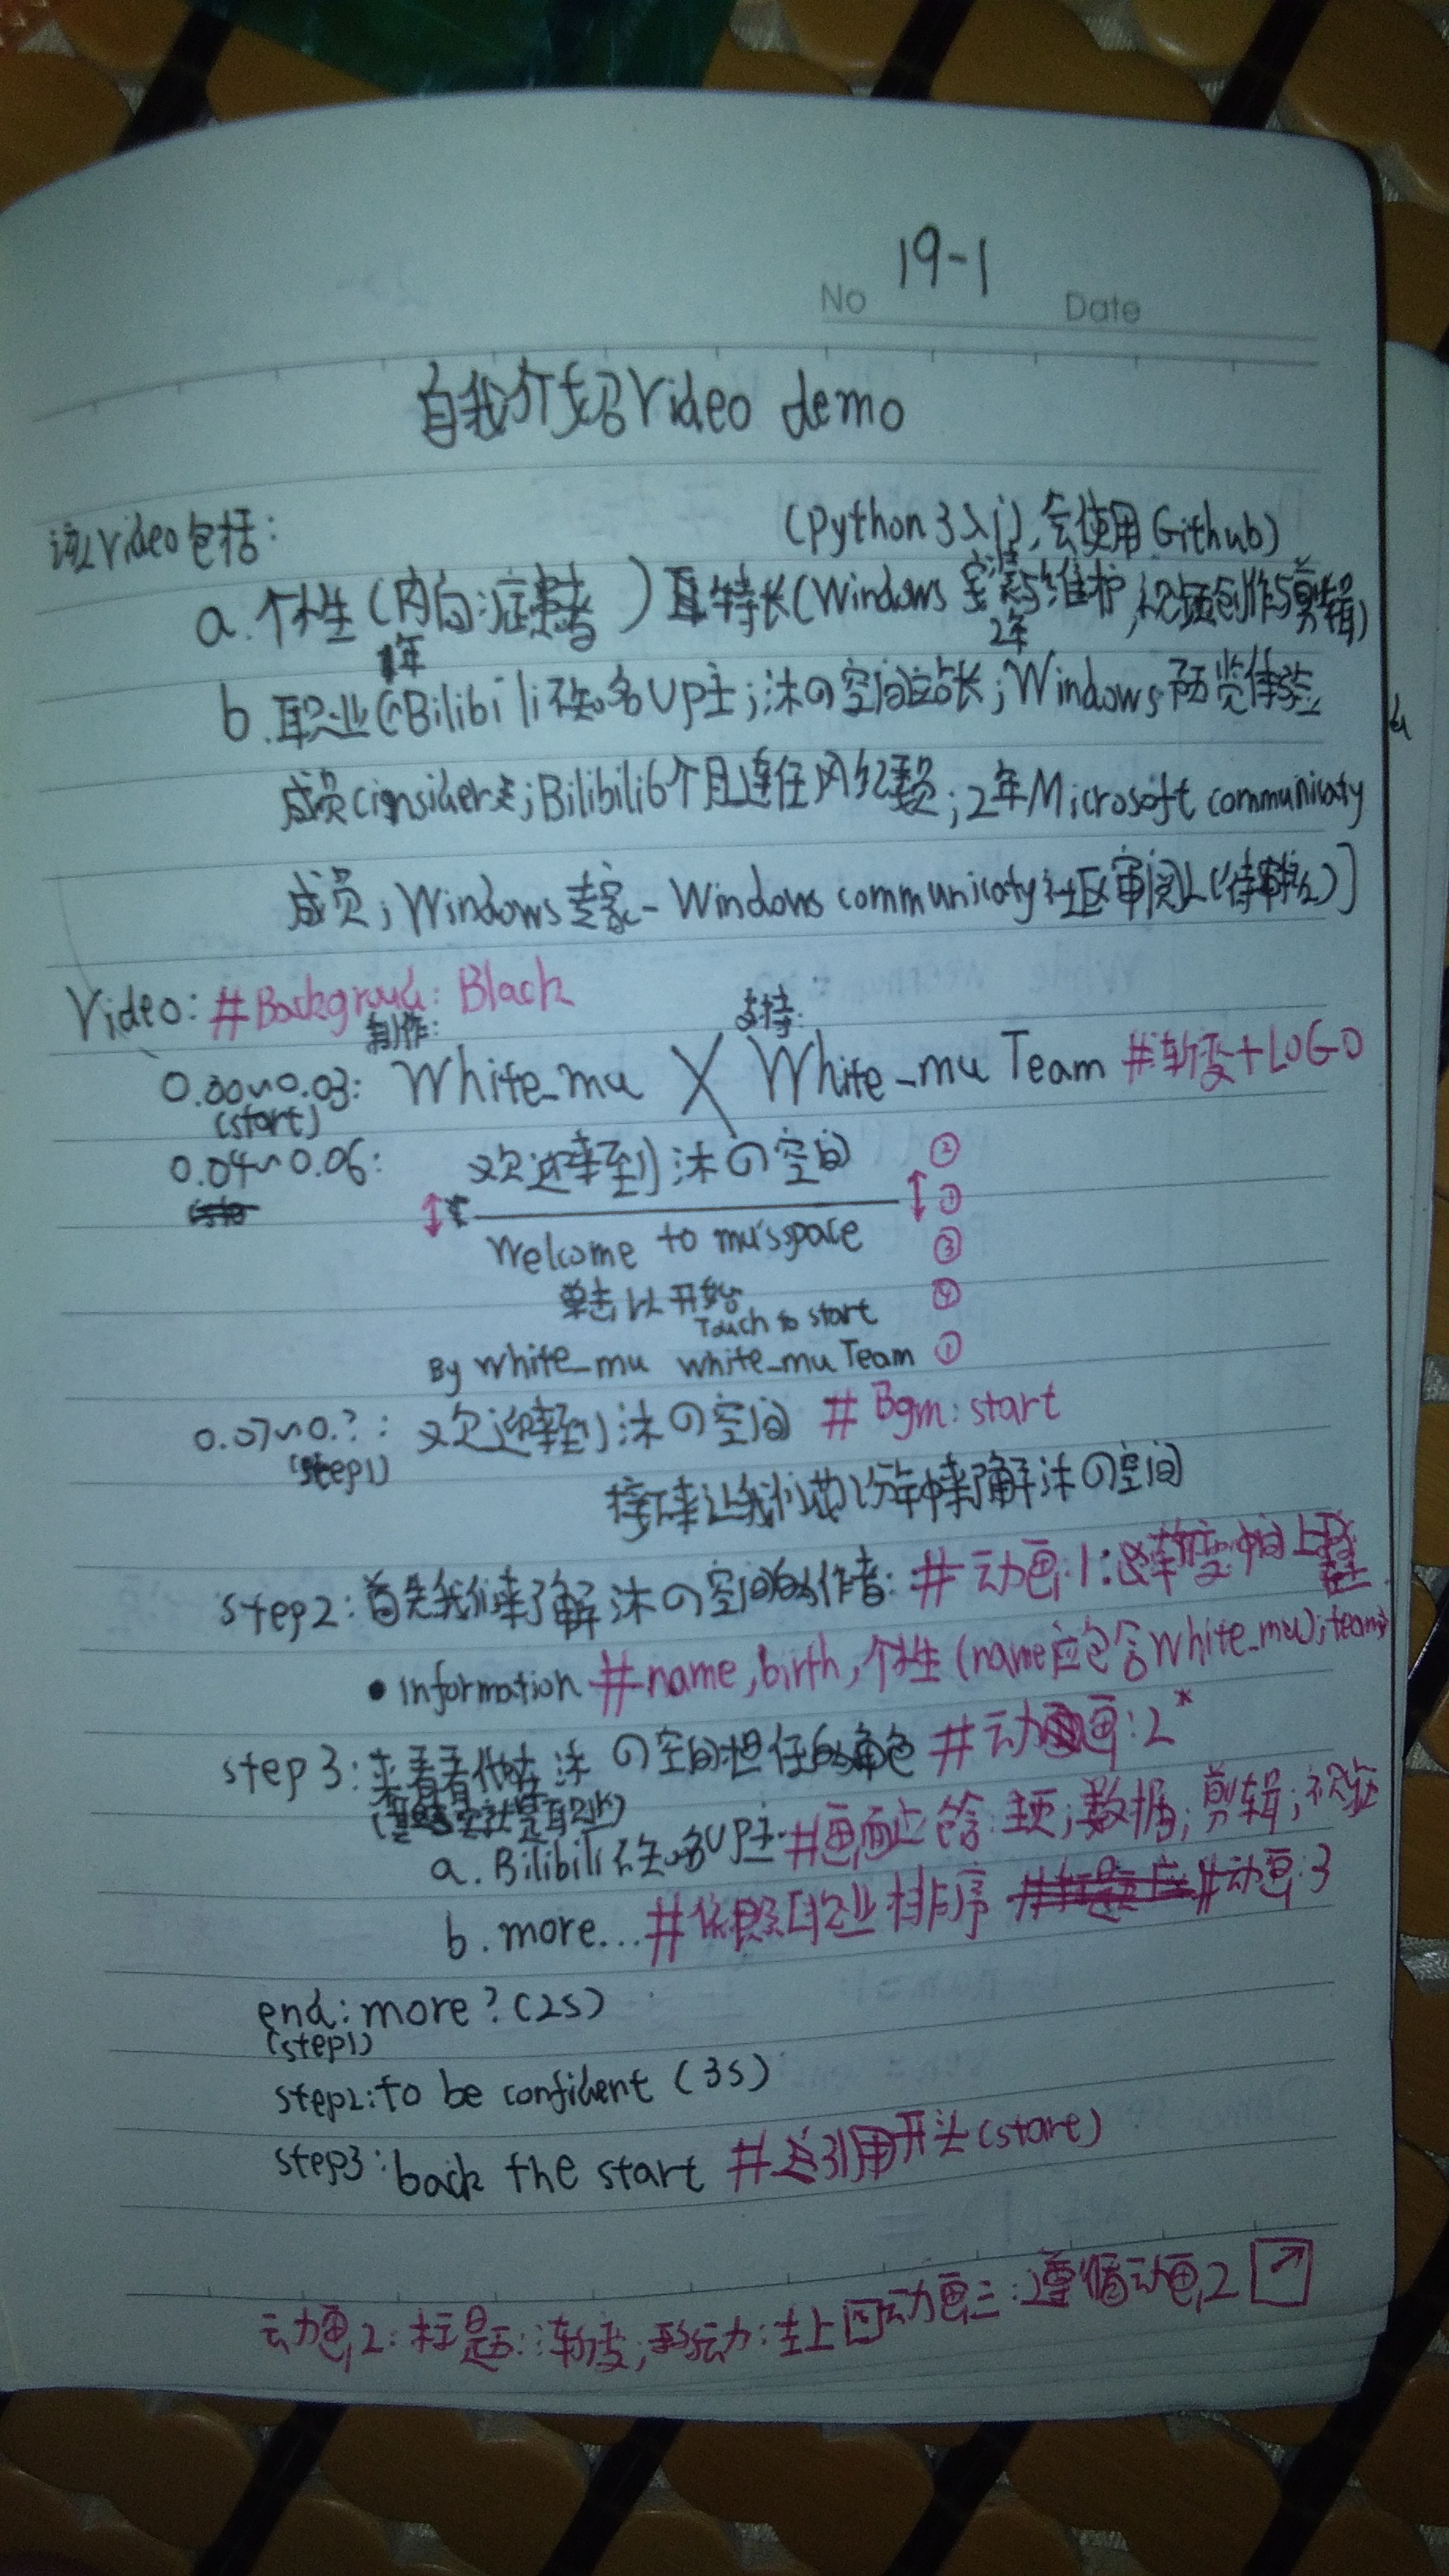 No 19-1 Date
自我介绍Video demo
该Video包括:
(Python3入门,会使用Github)
a.个性(内向;症患者)及特长(Windows安装与维护,视频创作与剪辑)
1年 2年
b.职业[Bilibili不知名UP主;沐の空间站长;Windows预览体验
成员(insider);Bilibili6个月连任风纪委员;2年Microsoft communicaty
成员;Windows专家-Windows communicaty社区审阅人(待审核)]
Video: #Backgroud: Black
制作: 支持:
0.00~0.03: White_mu X White_mu Team #渐变+LOGO
(start)
0.04~0.06: 欢迎来到沐の空间 ②
↕ ↕ ①
Welcome to mu'sspace ③
单击以开始 ④
Touch to start
By white_mu white_mu Team ①
0.07~0.?: 欢迎来到沐の空间 #Bgm:start
(step1)
接下来让我们花1分钟来了解沐の空间
step2:首先我们来了解沐の空间的作者: #动画1:渐变中间上移
•Information #name,birth,个性(name应包含White_mu);team
step3:来看看他在沐の空间担任的角色 #动画:2*
(其实就是职业)
a.Bilibili不知名UP主 #画面应含:主页;数据;剪辑;
b.more...#依照职业排序 #动画:3
end:more?(2s)
(step1)
step2:to be confident (3s)
step3:back the start #引用开头(start)
动画2:标题:渐变;移动:左上 动画三:遵循动画2